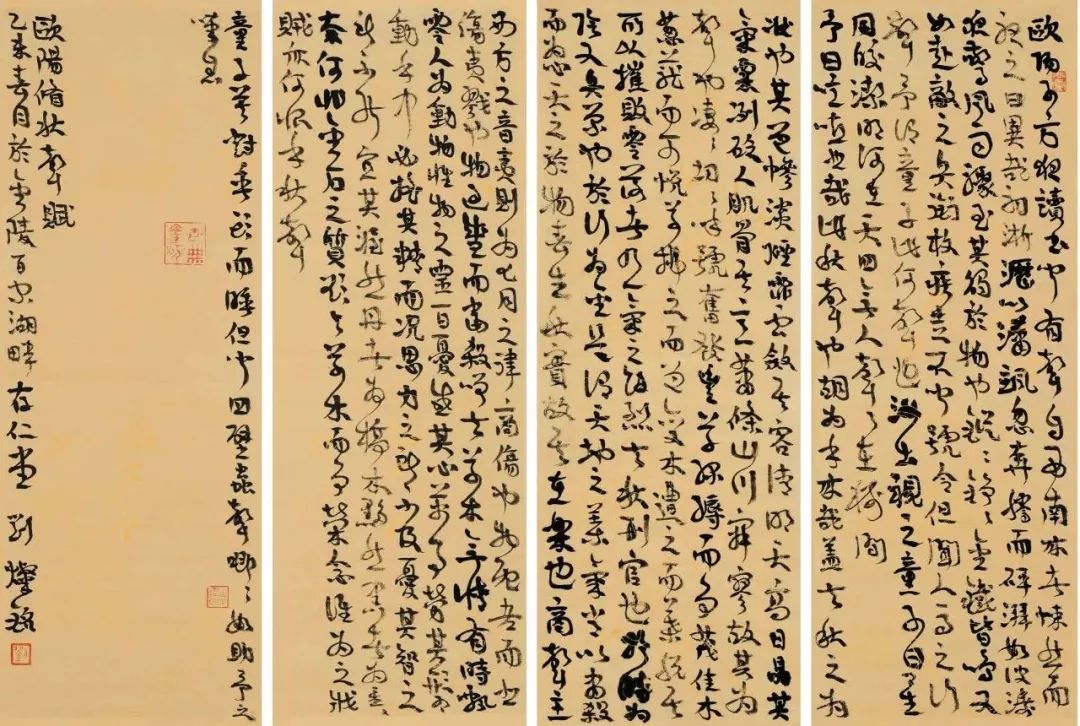 歐陽子方夜讀書聞有聲自西南來者悚然而
聽之曰異哉初淅瀝以瀟颯忽奔騰而砰湃如波濤
夜驚風雨驟至其觸於物也鏦鏦錚錚金鐵皆鳴又
如赴敵之兵銜枚疾走不聞號令但聞人馬之行
聲予謂童子此何聲也汝出視之童子曰星
月皎潔明河在天四無人聲聲在樹間
予曰噫嘻悲哉此秋聲也胡為乎來哉蓋夫秋之為
狀也其色慘淡煙霏雲斂其容清明天高日晶其
氣慄冽砭人肌骨其意蕭條山川寂寥故其為
聲也淒淒切切呼號奮發豐草綠縟而爭茂佳木
蔥蘢而可悅草拂之而色變木遭之而葉脫其
所以摧敗零落者乃其氣之餘烈夫秋刑官也於時為
陰又兵象也於行為金是謂天地之義氣常以肅殺
而為心天之於物春生秋實故其在樂也商聲主
西方之音夷則為七月之律商傷也物既老而悲
傷夷戮也物過盛而當殺嗟夫草木無情有時飄
零人為動物惟物之靈百憂感其心萬事勞其形有
動乎中必搖其精而況思力之所不及憂其智之
所不能宜其渥然丹者為槁木黟然黑者為星星
奈何非金石之質欲與草木而爭榮念誰為之戕
賊亦何恨乎秋聲
童子莫對垂頭而睡但聞四壁蟲聲唧唧如助予之
嘆息
歐陽脩秋聲賦
乙未春月於金陵百家湖畔存仁堂 劉燦銘